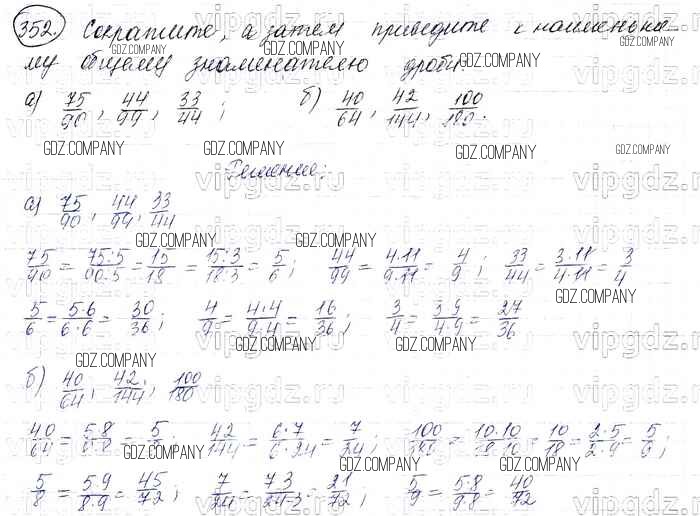 352. Сократите, а затем приведите к наименьше-
му общему знаменателю дроби.
а) 75/90, 44/99, 33/44; б) 40/64, 42/144, 100/180.
Решение:
а) 75/90, 44/99, 33/44
75/90 = 75:5/90:5 = 15/18 = 15:3/18:3 = 5/6; 44/99 = 4·11/9·11 = 4/9; 33/44 = 3·11/4·11 = 3/4
5/6 = 5·6/6·6 = 30/36; 4/9 = 4·4/9·4 = 16/36; 3/4 = 3·9/4·9 = 27/36
б) 40/64, 42/144, 100/180
40/64 = 5·8/8·8 = 5/8; 42/144 = 6·7/6·24 = 7/24; 100/180 = 10·10/18·10 = 10/18 = 2·5/2·9 = 5/9;
5/8 = 5·9/8·9 = 45/72; 7/24 = 7·3/24·3 = 21/72; 5/9 = 5·8/9·8 = 40/72
GDZ.COMPANY
vipgdz.ru